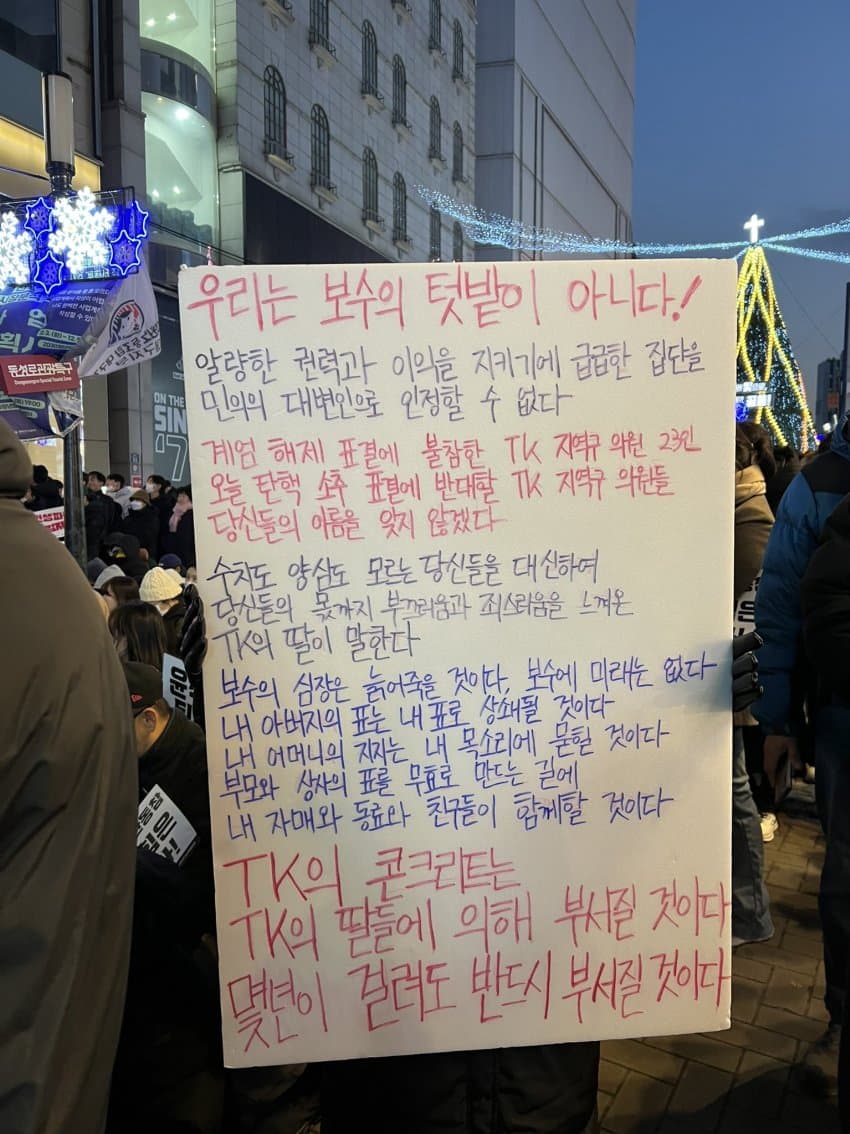 우리는 보수의 텃밭이 아니다!
알량한 권력과 이익을 지키기에 급급한 집단을
민의의 대변인으로 인정할 수 없다
계엄 해제 표결에 불참한 TK 지역규 의원 23인
오늘 탄핵 소추 표결에 반대할 TK 지역규 의원들
당신들의 이름을 잊지 않겠다
수치도 양심도 모르는 당신들을 대신하여
당신들의 몫까지 부끄러움과 죄스러움을 느껴온
TK의 딸이 말한다
보수의 심장은 늙어죽을 것이다, 보수에 미래는 없다
내 아버지의 표는 내 표로 상쇄될 것이다
내 어머니의 지지는 내 목소리에 묻힐 것이다
부모와 상사의 표를 무효로 만드는 길에
내 자매와 동료와 친구들이 함께할 것이다
TK의 콘크리트는
TK의 딸들에 의해 부서질 것이다
몇년이 걸려도 반드시 부서질 것이다
동성로관광특구
Dongseongro Special Tourist Zone
ON THE
SIN
'7